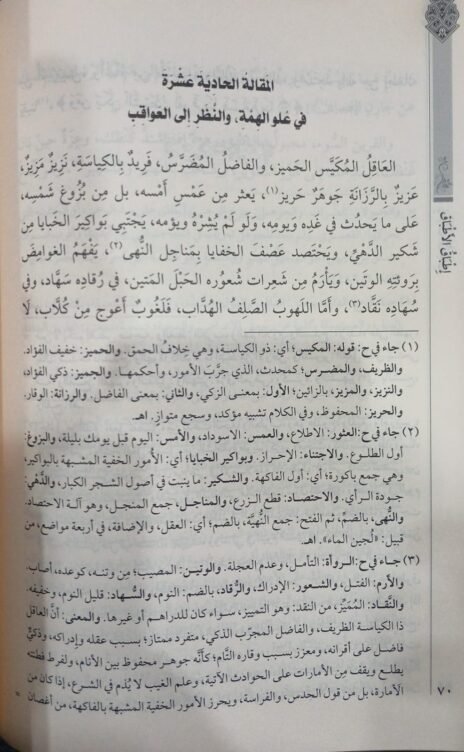 المقالة الحادية عَشْرَة
في عُلو الهِمَّة، والنّظرِ إلى العواقب
العَاقِلُ المُكَيَّس الحَميز، والفاضلُ المُضَرَّس، فَرِيدٌ بِالكِياسَةِ، نَزِيزٌ مَزِيزٌ،
عَزِيزٌ بِالرَّزانَةِ جَوهَرٌ حَريز(١)، يَعثر مِن عَمْسِ أَمْسه، بل مِن بُزُوغِ شَمْسِه،
عَلى ما يَحدُث في غَدِه ويَومِه، وَلَو لَمْ يُشِرْهُ ويؤمه، يَجْتَبِي بَواكِيرَ الخَبايا مِن
شَكير الدَّهْيِ، ويَحْتَصد عَصْفَ الخفايا بِمَناجِلِ النُّهى(٢)، يَفْهَمُ الغَوامِضَ
بِرَوِيَّتِهِ الوتَين، ويَأْرُم مِن شَعِرات شُعُورِه الحَبْلَ المَتين، في رُقادِهِ سَهَّاد، وفي
سُهادِه نَقَّاد(٣)، وأَمَّا اللَّهوبُ الصَّلِفُ الهُذَاب، فَلَغُوبٌ أَعْوج مِنْ كُلَّاب، لَا
(١) جاء في ح: قوله: المكيس؛ أي: ذو الكياسة، وهي خِلافُ الحمق. والحميز: خفيف الفؤاد،
والظريف، والمضرس؛ كمحدث، الذي جرَّب الأمور، وأحكمها. والجميز: ذكي الفؤاد،
والنزيز، والمزيز، بالزائين؛ الأول: بمعنى الزكي، والثاني: بمعنى الفاضل. والرزانة: الوقار.
والحريز: المحفوظ، وفي الكلام تشبيه مؤكد، وسجع متوازٍ. اهـ.
(٢) جاء في ح: العثور: الاطلاع، والعمس: الاسوداد، والأمس: اليوم قبل يومك بليلة، والبزوغ:
أول الطلوع. والاجتناء: الإحراز. وبواكير الخبايا؛ أي: الأُمور الخفية المشبهة بالبواكير،
وهي جمع باكورة؛ أي: أول الفاكهة. والشكير: ما ينبت في أصول الشجر الكبار، والدَّهْي:
جودة الرأي. والاحتصاد: قطع الزرع، والمناجل، جمع المنجل، وهو آلة الاحتصاد.
والنُّهى، بالضمِّ، ثم الفتح: جمع النُّهيَّة، بالضم؛ أي: العقل، والإضافة، في أربعة مواضع، من
قبيل: «لُجين الماء». اهـ.
(٣) جاء في ح: الروأة: التأمل، وعدم العجلة. والوتين: المصيب؛ مِن وتنه، كوعده، أصاب.
والأرم: الفتل، والشعور: الإدراك، والرُّقاد، بالضم: النوم، والسُّهاد: قليل النوم، وخفيفه.
والنَّقَّاد: المُمَيِّز، من النقد: وهو التمييز، سواء كان للدراهم أو غيرها. والمعنى: أنَّ العاقل
ذا الكياسة الظريف، والفاضل المجرِّب الذكي، متفرد ممتاز؛ بسبب عقله وإدراكه، وذكيٌّ
فاضل على أقرانه، ومعزز بسبب وقاره التَّام؛ كأنَّه جوهر محفوظ بين الأنام، ولفرط فطنته
يطلع ويقف مِن الأمارات على الحوادث الآتية، وعلم الغيب لا يُذم في الشرع، إذا كان من
الأمارة، بل من قول الحدس، والفراسة، ويحرز الأمور الخفية المشبهة بالفاكهة، من أغصان =
إطباق الأطباق
٧٠